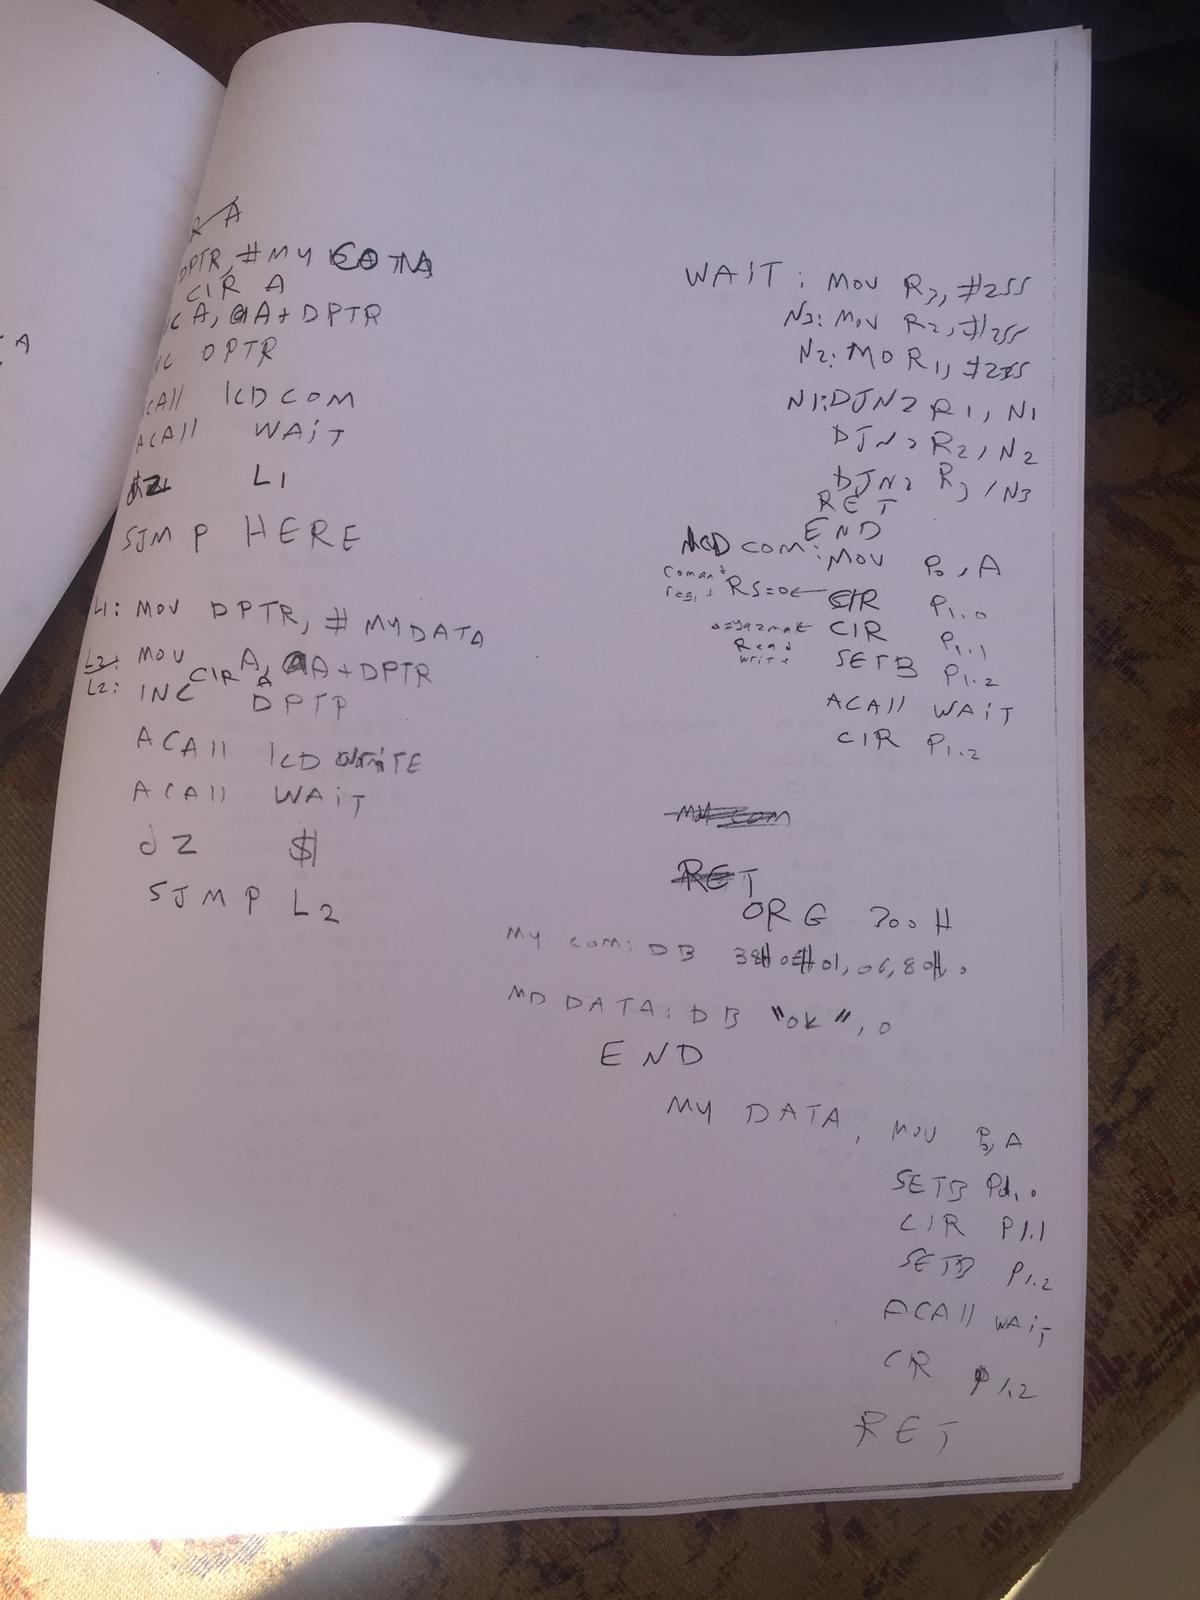 A
R A
DPTR, #MY
CIR A
C A, @A+DPTR
C DPTR
CAll lCDCOM
ACAll WAIT
L1
SJMP HERE
L1: MOV DPTR, # MYDATA
L2: MOV A, @A+DPTR
CIR A
L2: INC DPTR
ACAll lCD WRITE
ACAll WAIT
JZ $
SJMP L2
WAIT: MOV R3, #255
N3: MOV R2, #255
N2: MO R1, #255
N1: DJNZ R1, N1
DJNZ R2, N2
DJNZ R3, N3
RET
END
lCD COM: MOV P0, A
RS=0 ← CIR P1.0
CIR P1.1
Read
write
SETB P1.2
ACAll WAIT
CIR P1.2
MY COM
RET
ORG 300H
MY COM: DB 38H 0EH 01, 06, 80H, 0
MD DATA: DB "OK", 0
END
MY DATA, MOV P0, A
SETB P1.0
CIR P1.1
SETB P1.2
ACAll WAIT
CR P1.2
RET